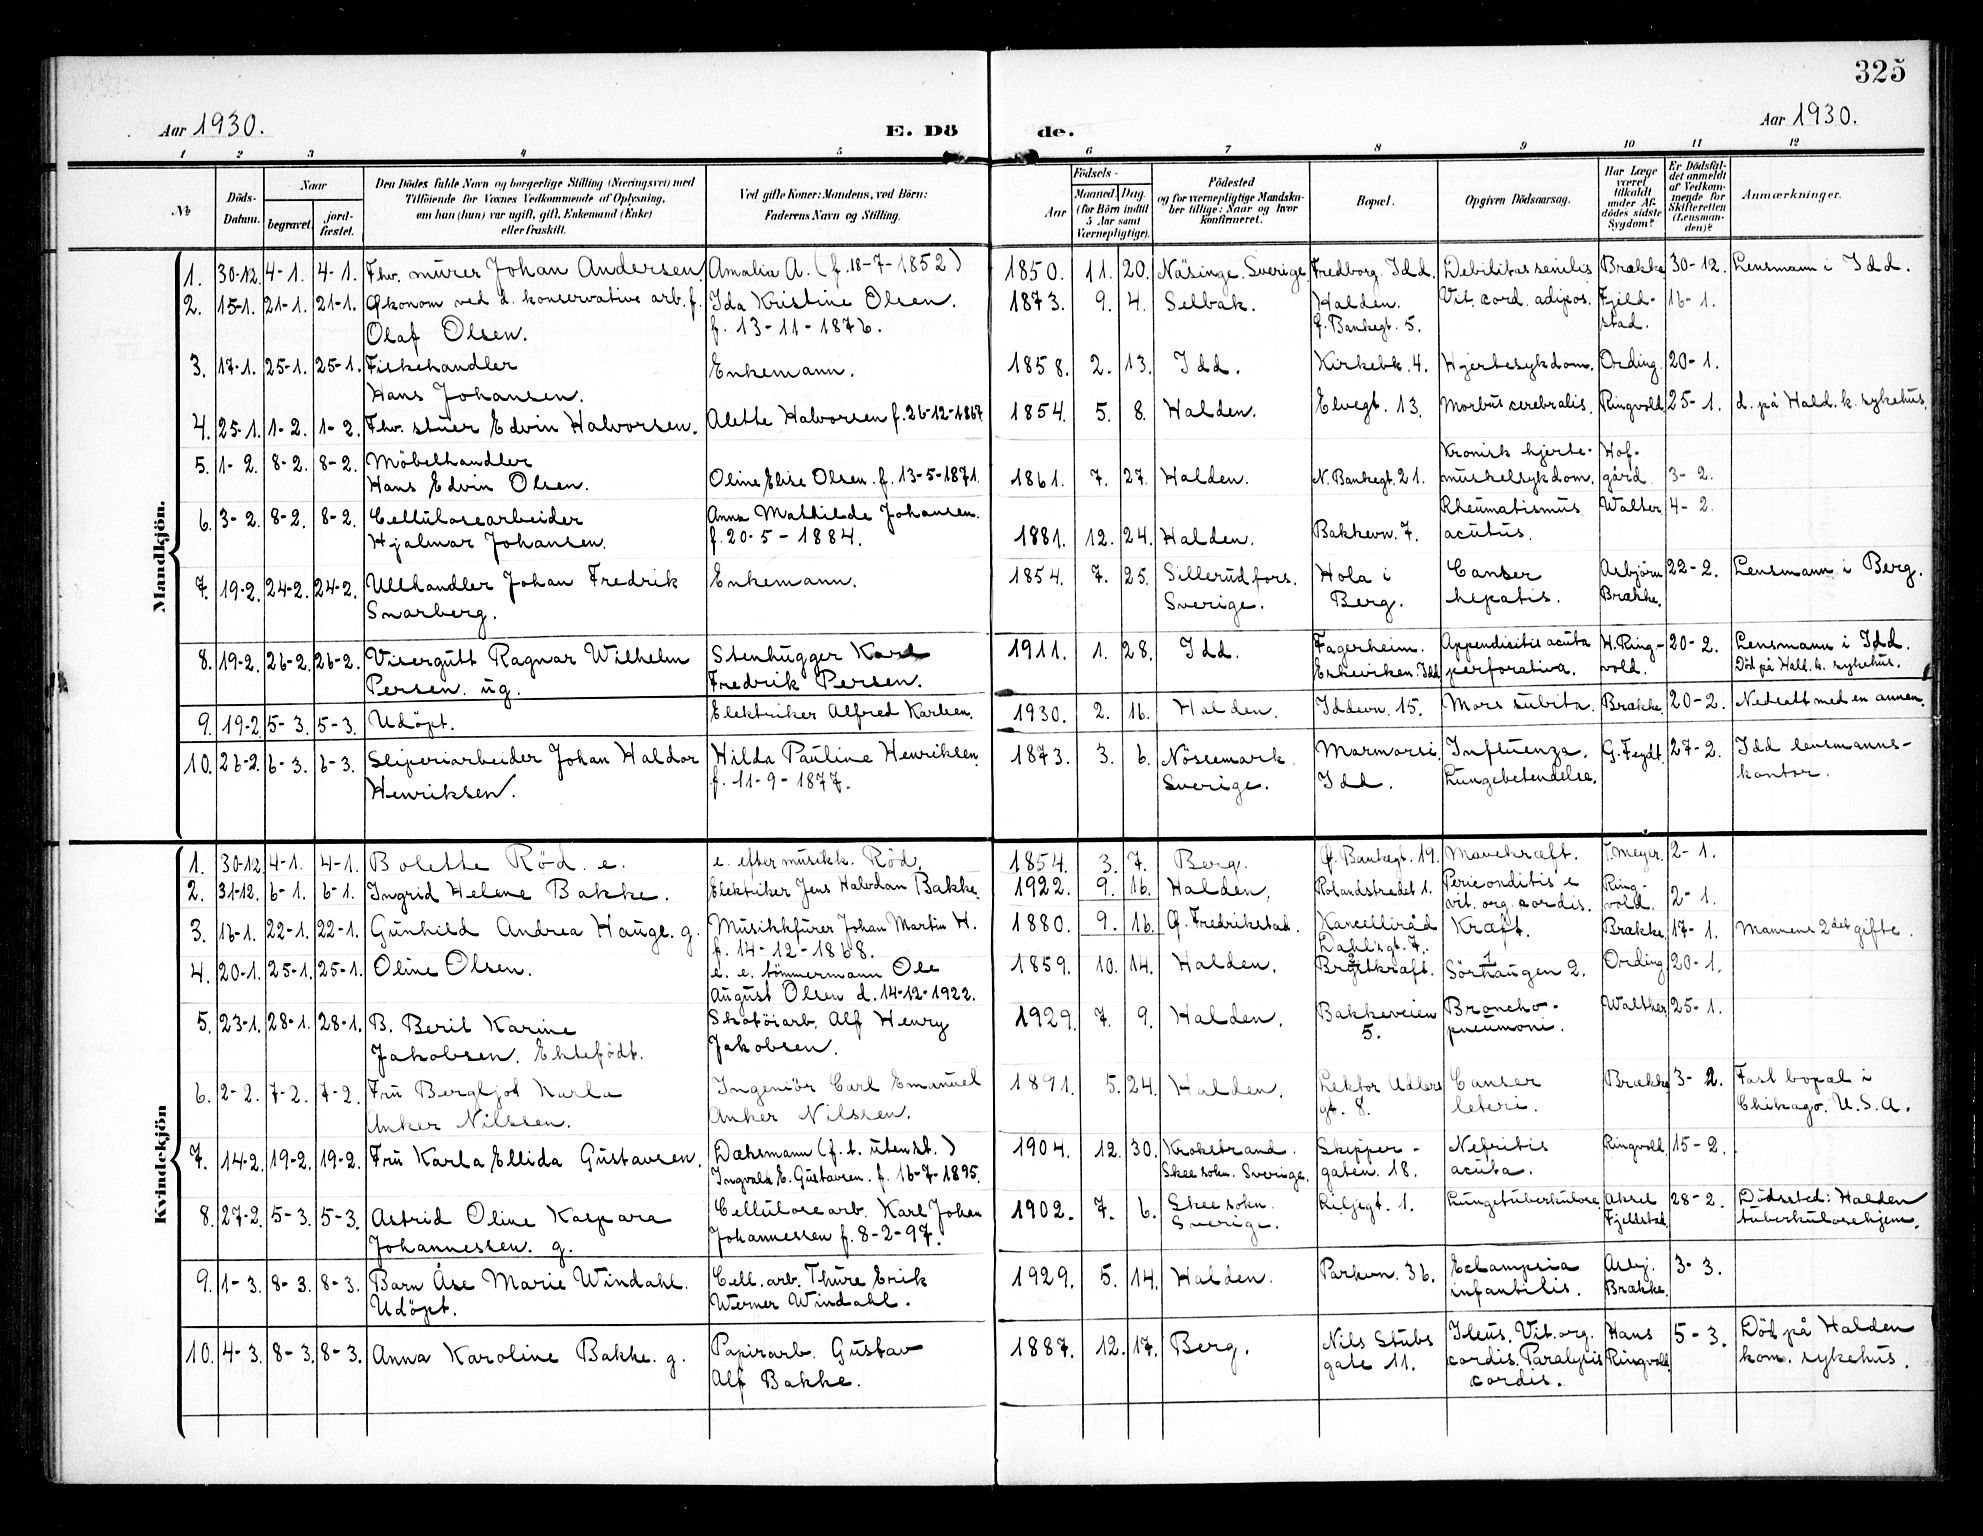 325
Aar 1930.
E. Dö
de.
Aar 1930.
1 2 3 4 5 6 7 8 9 10 11 12
No
Döds-
Datum.
Naar
begravet.
jord-
fæstet.
Den Dödes fulde Navn og borgerlige Stilling (Næringsvei) med
Tilföiende for Voxnes Vedkommende af Oplysning,
om han (hun) var ugift, gift, Enkemand (Enke)
eller fraskilt.
Ved gifte Koner: Mandens, ved Börn:
Faderens Navn og Stilling.
Födsels-
Aar
Maaned
Dag.
(for Börn indtil
5 Aar samt
Værnepligtige).
Födested
og for værnepligtige Mandska-
ber tillige: Naar og hvor
Konfirmeret.
Bopæl.
Opgiven Dödsaarsag.
Har Læge
været
tilkaldt
under Af-
dödes sidste
Sygdom?
Er Dödsfal-
det anmeldt
af Vedkom-
mende for
Skifteretten
(Lensman-
den)?
Anmærkninger.
Mandkjön.
1. 30-12 4-1. 4-1. Fhv. murer Johan Andersen Amalia A. (f. 18-7-1852) 1850. 11. 20. Näsinge. Sverige Fredborg. Idd. Debilitas senilis Brække 30-12. Lensmann i Idd.
2. 15-1. 21-1. 21-1. Økonom ved d. konservative arb. f. Ida Kristine Olsen. 1873. 9. 4. Selbak. Halden. Vit. cord. adipos. Fjeld- 16-1.
Olaf Olsen. f. 13-11-1876. Ø. Bankegt. 5. stad.
3. 17-1. 25-1. 25-1. Fiskehandler Enkemann. 1858. 2. 13. Idd. Kirkebk. 4. Hjertesykdom. Ording. 20-1.
Hans Johansen.
4. 25-1. 1-2. 1-2. Fhv. stuer Edvin Halvorsen. Alette Halvorsen f. 26-12-1867 1854. 5. 8. Halden. Elvegt. 13. Morbus cerebralis. Ringvold 25-1. d. på Hald. k. sykehus.
5. 1-2. 8-2. 8-2. Möbelhandler Kronisk hjerte- Hof-
Hans Edvin Olsen. Oline Elise Olsen. f. 13-5-1871. 1861. 7. 27. Halden. N. Bankegt. 21. muskelsykdom. gård. 3-2.
6. 3-2. 8-2. 8-2. Cellulosearbeider Anna Mathilde Johansen. Rheumatismus Walter 4-2.
Hjalmar Johansen. f. 20-5-1884. 1881. 12. 24. Halden. Bakkevn. 7. acutus.
7. 19-2. 24-2. 24-2. Ullhandler Johan Fredrik Enkemann. 1854. 7. 25. Sillerud fors. Hola i Canser Asbjörn 22-2. Lensmann i Berg.
Snarberg. Sverige. Berg. hepatis. Brække.
8. 19-2. 26-2. 26-2. Visergutt Ragnar Wilhelm Stenhugger Karl 1911. 1. 28. Idd. Fagerheim. Appendicitis acuta H. Ring- 20-2. Lensmann i Idd.
Persen. ug. Fredrik Persen. Enkevirken. Idd perforativa. vold. Död på Hald. k. sykehus.
9. 19-2 5-3 5-3. Udöpt. Elektriker Alfred Karlsen. 1930. 2. 16. Halden. Iddevn. 15. Mors subita. Brække. 20-2. Nedsatt med en annen.
10. 26-2. 6-3. 6-3. Sliperiarbeider Johan Haldor Hilda Pauline Henriksen 1873. 3. 6. Nössemark. Marmorsi. Influenza. G. Feydt. 27-2. Idd lensmanns-
Henriksen. f. 11-9-1877. Sverige. Idd. Lungebetendelse. kontor.
Kvindekjön
1. 30-12 4-1. 4-1. Bolette Röd. e. e. efter musikk. Röd. 1854. 3. 7. Berg. Ø. Bankegt. 19. Mavekræft. T. Meyer. 2-1.
2. 31-12. 6-1. 6-1. Ingrid Helene Bakke. Elektriker Jens Halvdan Bakke. 1922. 9. 16. Halden. Rolandstredet 1. Periconditis e Ring- 2-1.
vit. org. cordis. vold.
3. 16-1. 22-1. 22-1. Gunhild Andrea Hauge. g. Musikkfurer Johan Martin H. 1880. 9. 16. Ø. Fredrikstad. Kancelliråd Kræft. Brække. 17-1. Mannens 2det gifte.
f. 14-12-1868. Dahlsgt. 7.
4. 20-1. 25-1. 25-1. Oline Olsen. e. e. tömmermann Ole 1859. 10. 14. Halden. 2 Brystkræft. 1 Sörhaugen 2. Ording 20-1.
August Olsen d. 14-12-1922.
5. 23-1. 28-1. 28-1. B. Berit Karine Skotöiarb. Alf Henry 1929. 7. 9. Halden. Bakkeveien Broncho- Walther 25-1.
Jakobsen. Ektefödt. Jakobsen. 5. pneumoni.
6. 2-2. 7-2. 7-2. Fru Bergljot Karla Ingeniör Carl Emanuel 1891. 5. 24. Halden. Lektor Adlers Canser Brække 3-2. Fast bopæl i
Anker Nilssen. Anker Nilssen. gt. 8. leteri. Chikago. U.S.A.
7. 14-2. 19-2. 19-2. Fru Karla Ellida Gustavsen. Dæksmann (f. t. utenst.) 1904. 12. 30. Krokstrand. Skipper- Nefritis Ringvold 15-2.
Ingvald E. Gustavsen. f. 16-7-1895. Skee sokn. Sverige. gaten. 18. acuta.
8. 27-2. 5-3. 5-3. Astrid Oline Kaspara Cellulosearb. Karl Johan 1902. 7. 6. Skee sokn. Liljegt. 1. Lungetuberkulose Aksel 28-2. Dödssted: Halden
Johannessen. g. Johannessen f. 8-2-97. Sverige. Fjeldstad. tuberkulosehjem.
9. 1-3. 8-3. 8-3. Barn Åse Marie Windahl. Cell. arb. Thure Erik 1929. 5. 14. Halden. Parkvn. 36. Eclampsia Asbj. 3-3.
Udöpt. Werner Windahl. infantilis. Brække.
10. 4-3. 8-3. 8-3. Anna Karoline Bakke. g. Papirarb. Gustav 1887. 12. 17. Berg. Nils Stubs Ileus. Vit. org. Hans 5-3. Död på Halden
Alf Bakke. gate 11. cordis. Paralysis Ringvold kom. sykehus.
cordis.